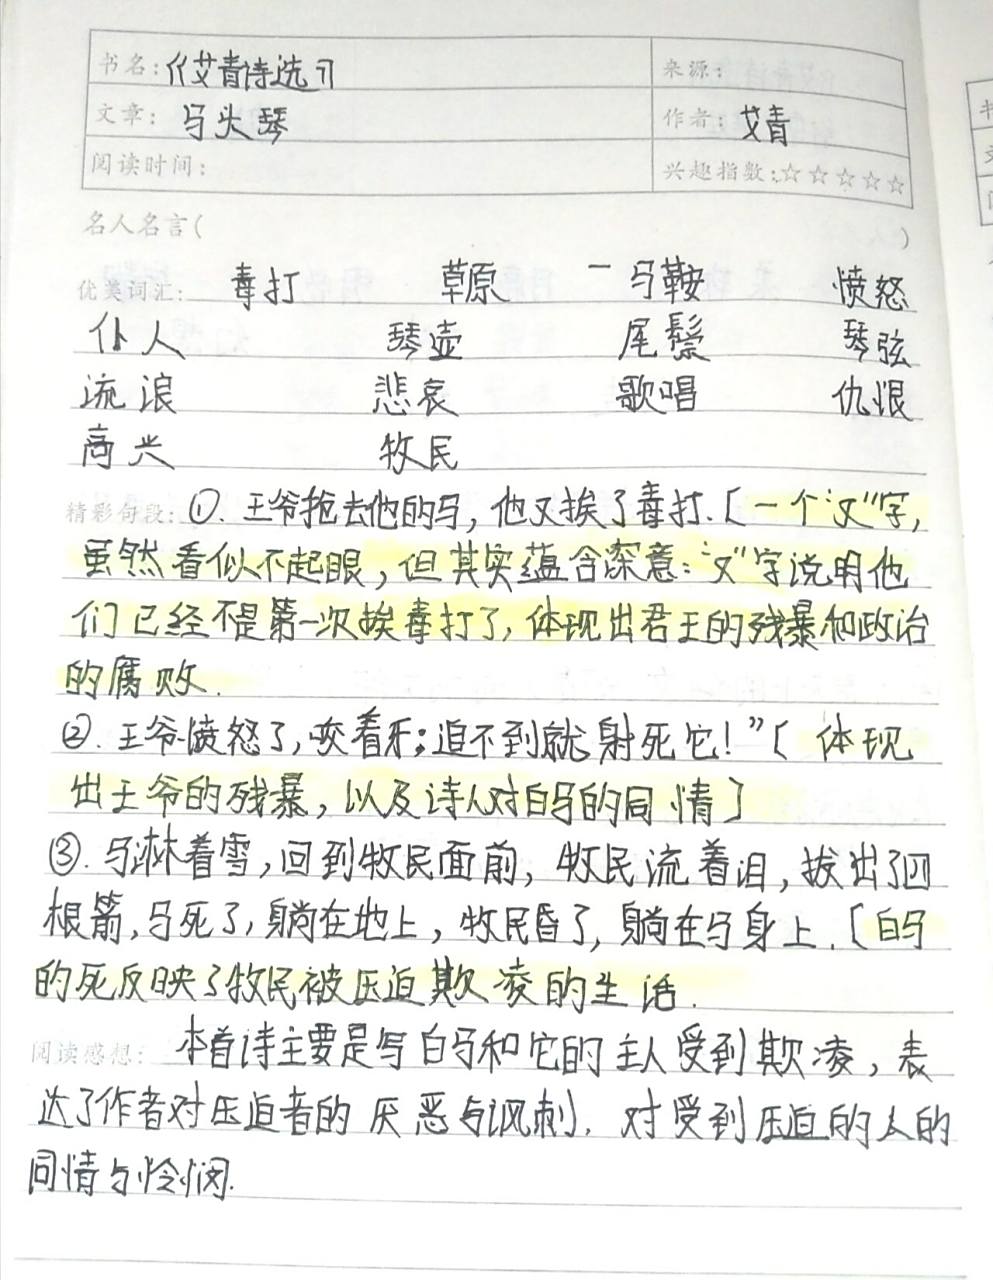 书名：《艾青诗选》 来源：
文章： 马头琴 作者： 艾青
阅读时间： 兴趣指数：☆☆☆☆☆
名人名言（ ）
优美词汇： 毒打 草原 一马鞍 愤怒
仆人 琴壶 尾鬃 琴弦
流浪 悲哀 歌唱 仇恨
高兴 牧民
精彩句段：①．王爷抢去他的马，他又挨了毒打．〔一个“又”字，
虽然看似不起眼，但其实蕴含深意：“又”字说明他
们已经不是第一次挨毒打了，体现出君王的残暴和政治
的腐败．
②．王爷愤怒了，咬着牙；追不到就射死它！”〔体现
出王爷的残暴，以及诗人对白马的同情〕
③．马淋着雪，回到牧民面前，牧民流着泪，拔出了四
根箭，马死了，躺在地上，牧民昏了，躺在马身上．〔白马
的死反映了牧民被压迫欺凌的生活．
阅读感想： 本首诗主要是写白马和它的主人受到欺凌，表
达了作者对压迫者的厌恶与讽刺．对受到压迫的人的
同情与怜悯．